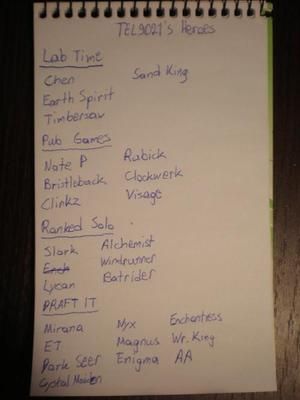 TEL9021's Heroes
Lab Time
Chen Sand King
Earth Spirit
Timbersaw
Pub Games
Nate P Rubick
Bristleback Clockwerk
Clinkz Visage
Ranked Solo
Slark Alchemist
Ench Windrunner
Lycan Batrider
DRAFT IT
Mirana Nyx Enchantress
ET Magnus Wr. King
Dark Seer Enigma AA
Cystal Maiden